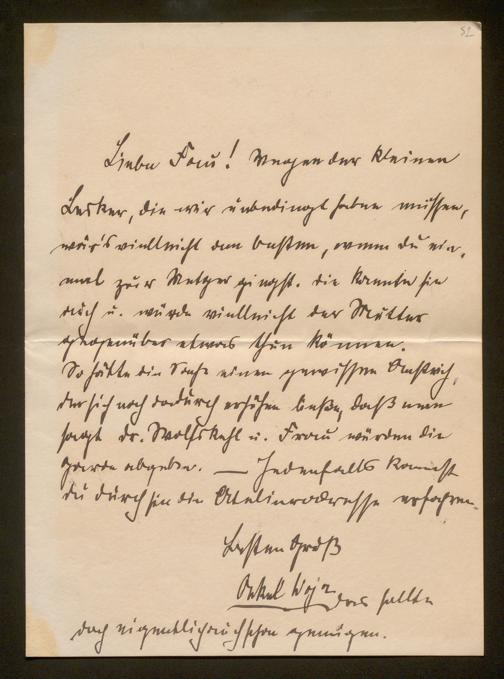 52
Liebe Frau! Wegen der kleinen
Lesker, die wir unbedingt haben müssen,
wär's vielleicht am besten, wenn du ein-
mal zur Metger gingst. die kannte sie
auch u. würde vielleicht der Mutter
gegenüber etwas thun können.
So hätte die Sache einen gewissen Anstrich,
der sich noch dadurch erhöhen ließe, daß man
sagt dr. Wolfskehl u. Frau würden die
Garde abgeben. — Jedenfalls kannst
du durch sie die Atelieradresse erfahren.
Besten Gruß
Onkel Woja das sollte
doch eigentlich auch schon genügen.